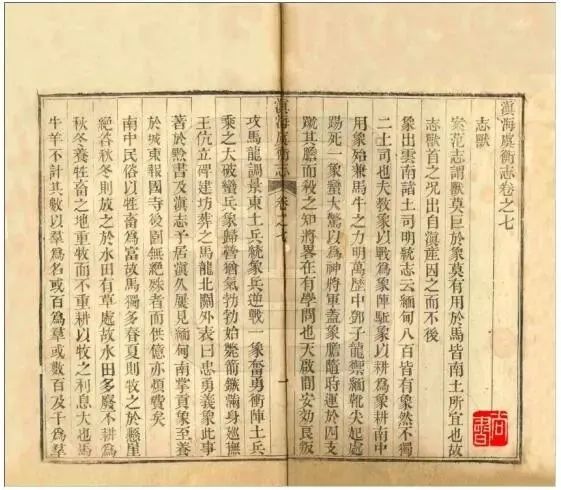 滇海虞衡志卷之七
志獸
案范志謂獸莫巨於象莫有用於馬皆南土所宜也故
志獸首之況出自滇産因之而不後
象出雲南諸土司明統志云緬甸八百皆有象然不獨
二土司也夫教象以戰為象陣駈象以耕為象耕南中
用象殆兼馬牛之力明萬歷中鄧子龍禦緬靴尖起處
踢死一象蠻大驚以為神將軍蓋象膽隨時運於四支
蹴其膽而殺之知將畧在有學問也天啟間安効良叛
滇海虞衡志 卷之七 一
攻馬龍調景東土兵統象兵逆戰一象奮勇衝陣土兵
乘之大破蠻兵象歸營猶氣勃勃始斃箭鏃滿身巡撫
王伉立碑建坊葬之馬龍北關外表曰忠勇義象此事
著於黔書及滇志予居滇久屢見緬甸南掌貢象至養
於城東報國寺後園無絕殊者而供億亦煩費矣
南中民俗以牲畜為富故馬獨多春夏則牧之於懸崖
絕谷秋冬則放之於水田有草處故水田多廢不耕為
秋冬養牲畜之地重牧而不重耕以牧之利息大也馬
牛羊不計其數以羣為名或百為羣或數百及千為羣